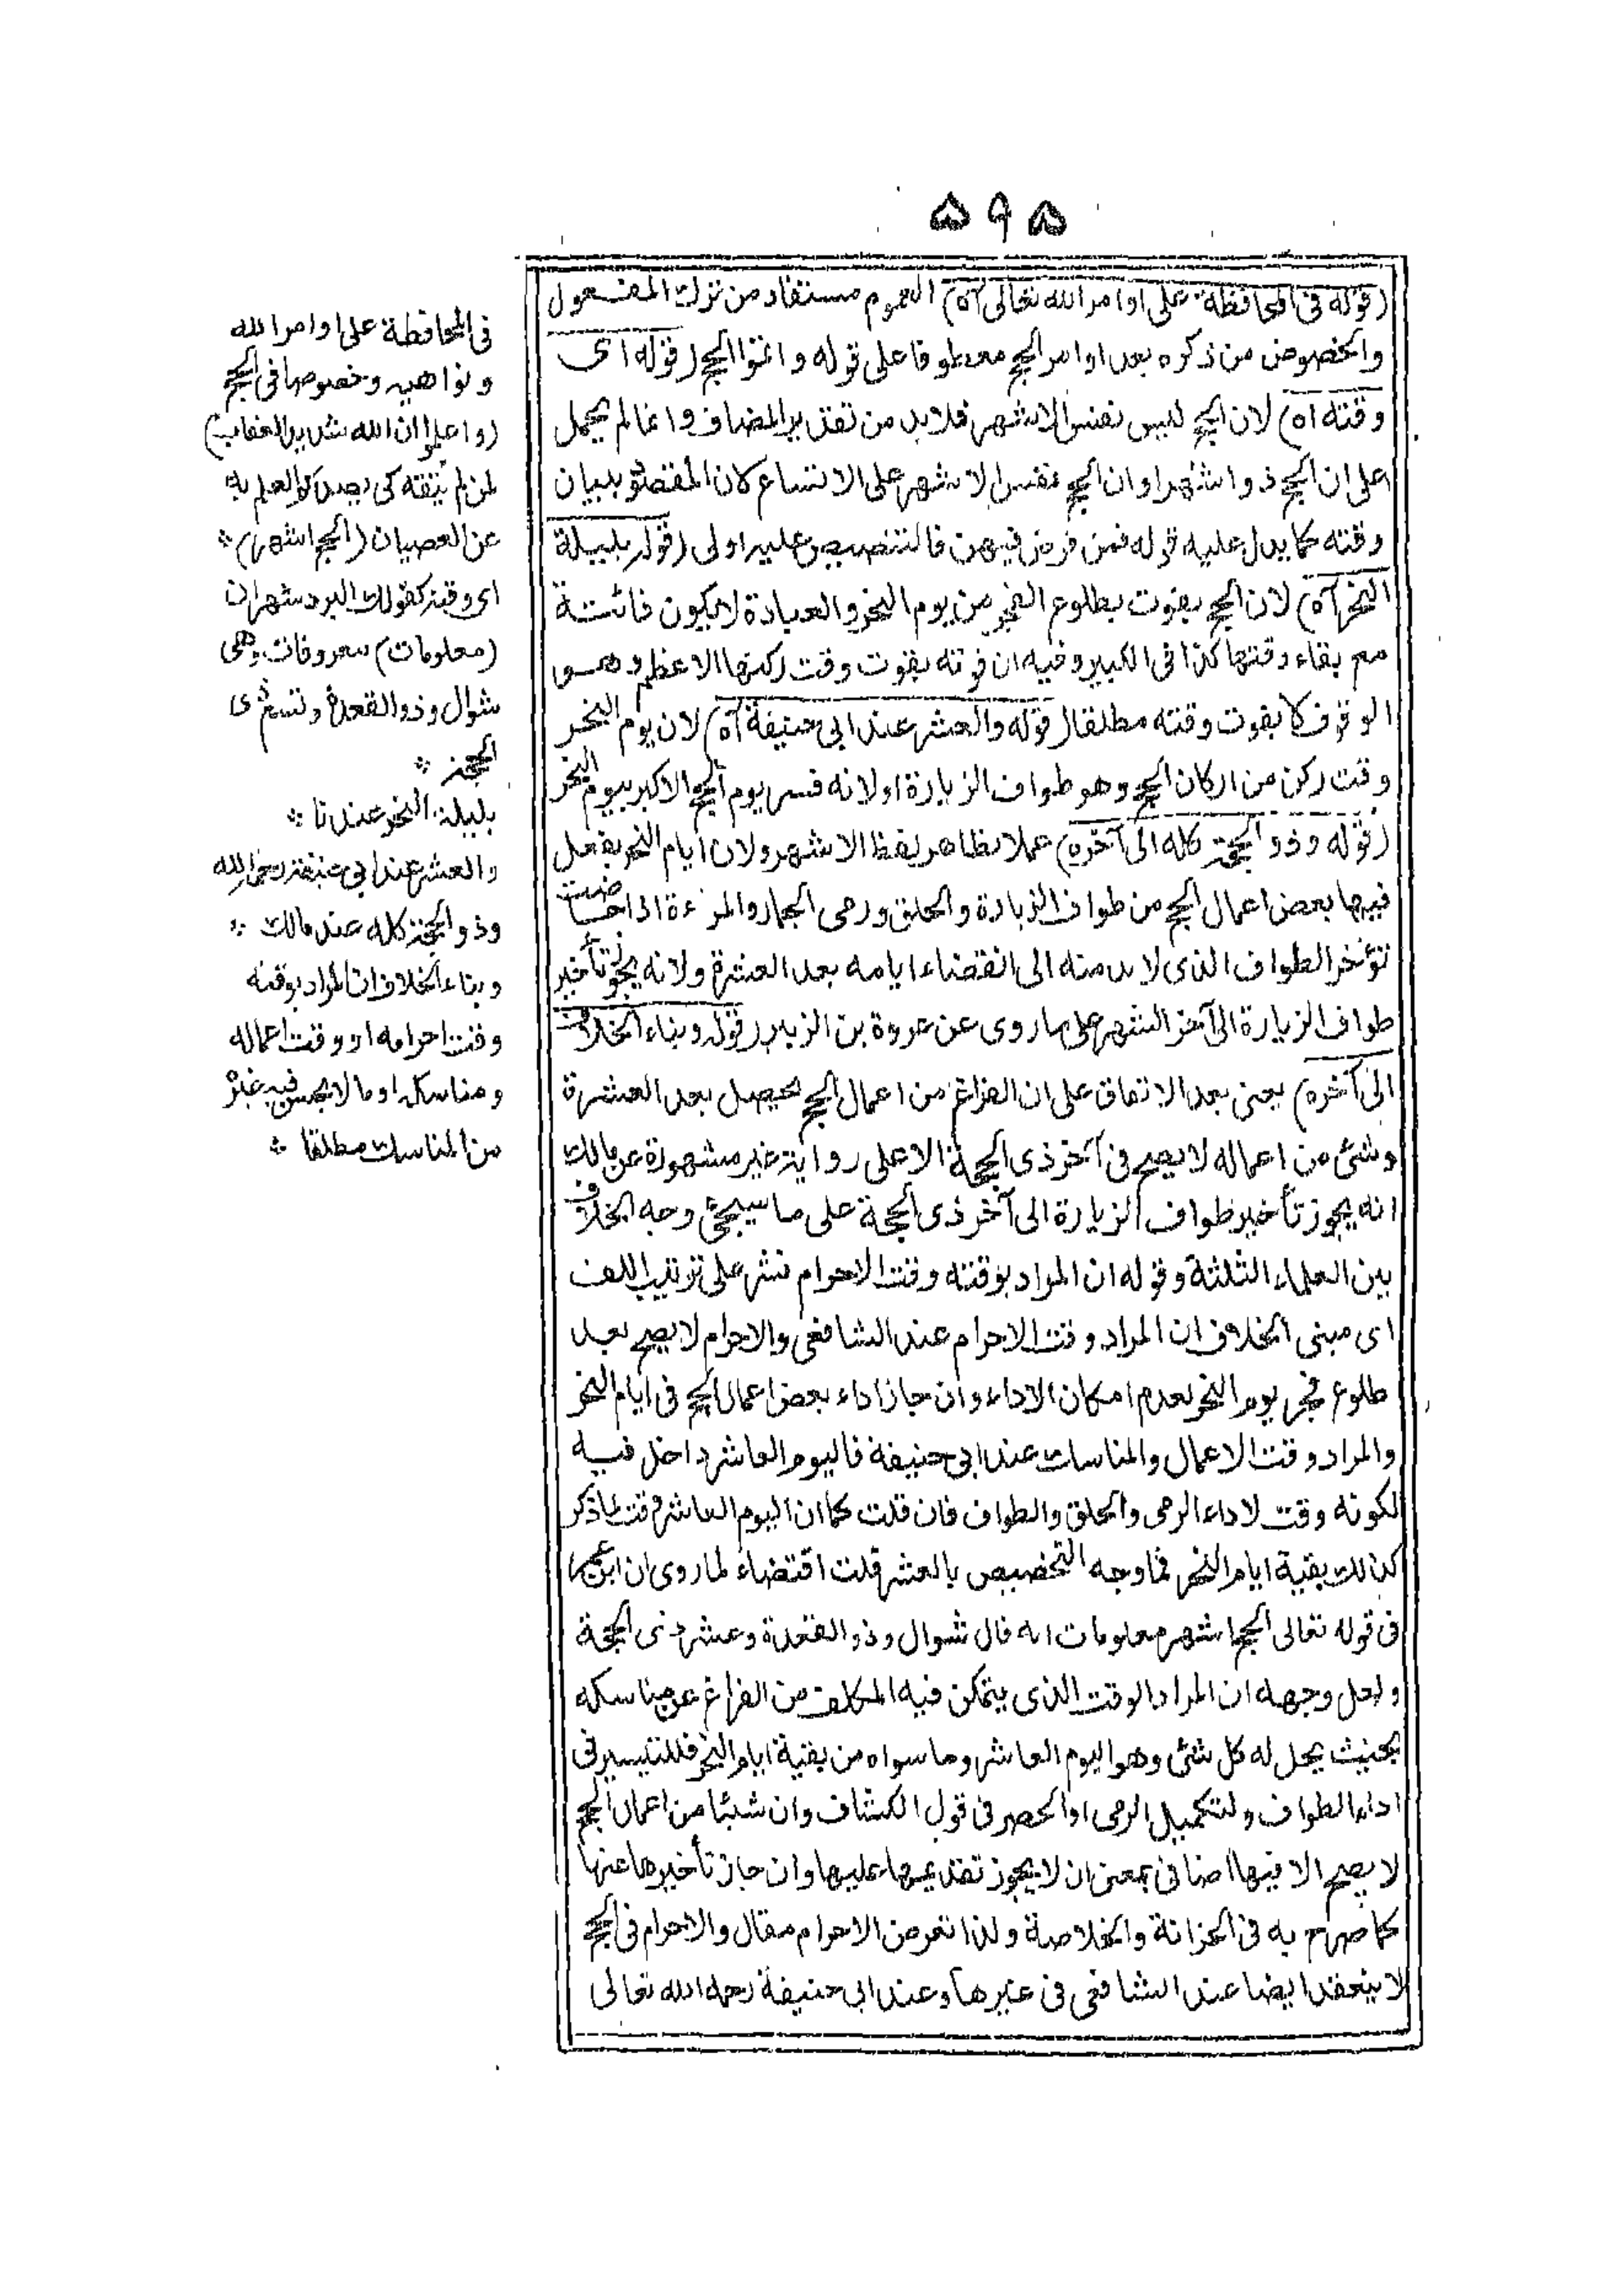 ۵۹۵
(قوله فى المحافظة على اوامر الله تعالى آه) العموم مستفاد من ترك المفعول
والخصوص من ذكره بعد اوامر الحج معطوفا على قوله واتموا الحج (قوله اى
وقته اه) لان الحج ليس نفس الاشهر فلابد من تقدير المضاف وانما لم يحمل
على ان الحج ذو اشهر او ان الحج نفس الاشهر على الاتساع لان المقصود بيان
وقته كما يدل عليه قوله فمن فرض فيهن فالتنصيص عليه اولى (قوله بليلة
النحر آه) لان الحج يفوت بطلوع الفجر من يوم النحر والعبادة لا يكون فائتة
مع بقاء وقتها كذا فى الكبير وفيه ان فوته بفوت وقت ركنها الاعظم وهو
الوقوف لا بفوت وقته مطلقا (قوله والعشر عند ابى حنيفة آه) لان يوم النحر
وقت ركن من اركان الحج وهو طواف الزيارة او لانه فسر يوم الحج الاكبر بيوم النحر
(قوله وذو الحجة كله الى آخره) عملا بظاهر لفظ الاشهر ولان ايام النحر يفعل
فيها بعض اعمال الحج من طواف الزيارة والحلق ورمى الجمار والمرءة اذا حاضت
تؤخر الطواف الذى لابد منه الى انقضاء ايامه بعد العشرة ولانه يجوز تأخير
طواف الزيارة الى آخر الشهر على ما روى عن عروة بن الزبير (قوله وبناء الخلاف
الى آخره) يعنى بعد الاتفاق على ان الفراغ من اعمال الحج يحصل بعد العشرة
وشئ من اعماله لا يصح فى آخر ذى الحجة الا على رواية غير مشهورة عن مالك
انه يجوز تأخير طواف الزيارة الى آخر ذى الحجة على ما سيجئ وجه الخلاف
بين العلماء الثلثة وقوله ان المراد بوقته وقت الاحرام نشر على ترتيب اللف
اى مبنى الخلاف ان المراد وقت الاحرام عند الشافعى والاحرام لا يصح بعد
طلوع فجر يوم النحر لعدم امكان الاداء وان جاز اداء بعض اعمال الحج فى ايام النحر
والمراد وقت الاعمال والمناسك عند ابى حنيفة فاليوم العاشر داخل فيه
لكونه وقت لاداء الرمى والحلق والطواف فان قلت كما ان اليوم العاشر وقت لما ذكر
كذلك بقية ايام النحر فما وجه التخصيص بالعشر قلت اقتضاء لما روى ان ابن عمر
فى قوله تعالى الحج اشهر معلومات انه قال شوال وذو القعدة وعشر ذى الحجة
ولعل وجهه ان المراد الوقت الذى يتمكن فيه المكلف من الفراغ عن مناسكه
بحيث يحل له كل شئ وهو اليوم العاشر وما سواه من بقية ايام النحر فللتيسير فى
اداء الطواف ولتكميل الرمى او الحصر فى قول الكشاف وان شيئا من اعمال الحج
لا يصح الا فيها اضافى بمعنى ان لا يجوز تقديمها عليها وان جاز تأخيرها عنها
كما صرح به فى الخزانة والخلاصة ولذا تعرض الاحرام فقال والاحرام فى الحج
لا ينعقد ايضا عند الشافعى فى غيرها وعند ابى حنيفة رحمه الله تعالى
فى المحافظة على اوامر الله
ونواهيه وخصوصا فى الحج
(واعلموا ان الله شديد العقاب)
لمن لم يتقه كى يصدكم العلم به
عن العصيان (الحج اشهر) *
اى وقته كقولك البرد شهران
(معلومات) معروفات وهى
شوال وذو القعدة وتسع ذى
الحجة *
بليلة النحر عندنا *
والعشر عند ابى حنيفة رحمه الله
وذو الحجة كله عند مالك *
وبناء الخلاف ان المراد بوقته
وقت احرامه او وقت اعماله
ومناسكه او ما لا يحسن فيه غيره
من المناسك مطلقا *